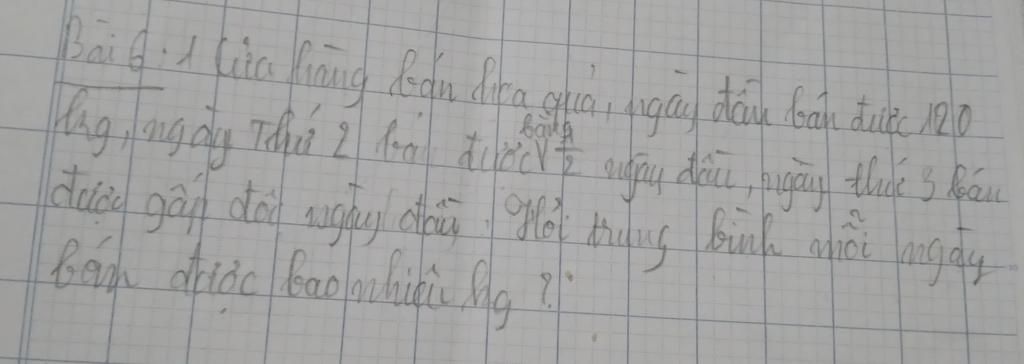 Bài 6: 1 cửa hàng bán hoa quả, ngày đầu bán được 120
kg, ngày thứ 2 bán được bằng 1/2 ngày đầu, ngày thứ 3 bán
được gấp đôi ngày đầu. Hỏi trung bình mỗi ngày
bán được bao nhiêu kg?